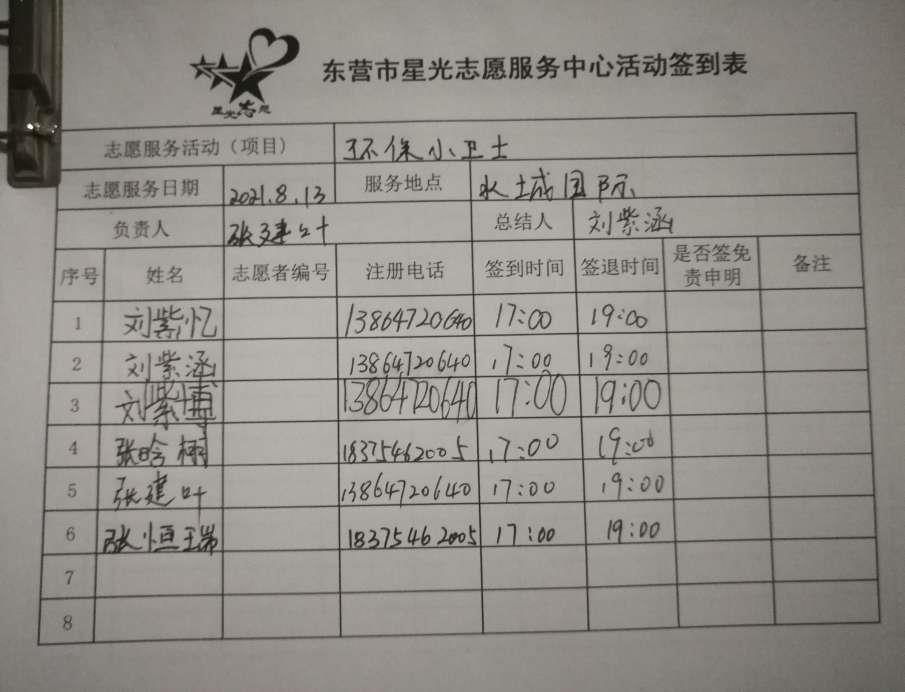 星光志愿
东营市星光志愿服务中心活动签到表
志愿服务活动（项目） 环保小卫士
志愿服务日期 2021.8.13 服务地点 水城国际
负责人 张建叶 总结人 刘紫涵
序号 姓名 志愿者编号 注册电话 签到时间 签退时间 是否签免责申明 备注
1 刘紫忆 13864720640 17:00 19:00
2 刘紫涵 13864720640 17:00 19:00
3 刘紫博 13864720640 17:00 19:00
4 张晗栩 18375462005 17:00 19:00
5 张建叶 13864720640 17:00 19:00
6 张恒瑞 18375462005 17:00 19:00
7
8